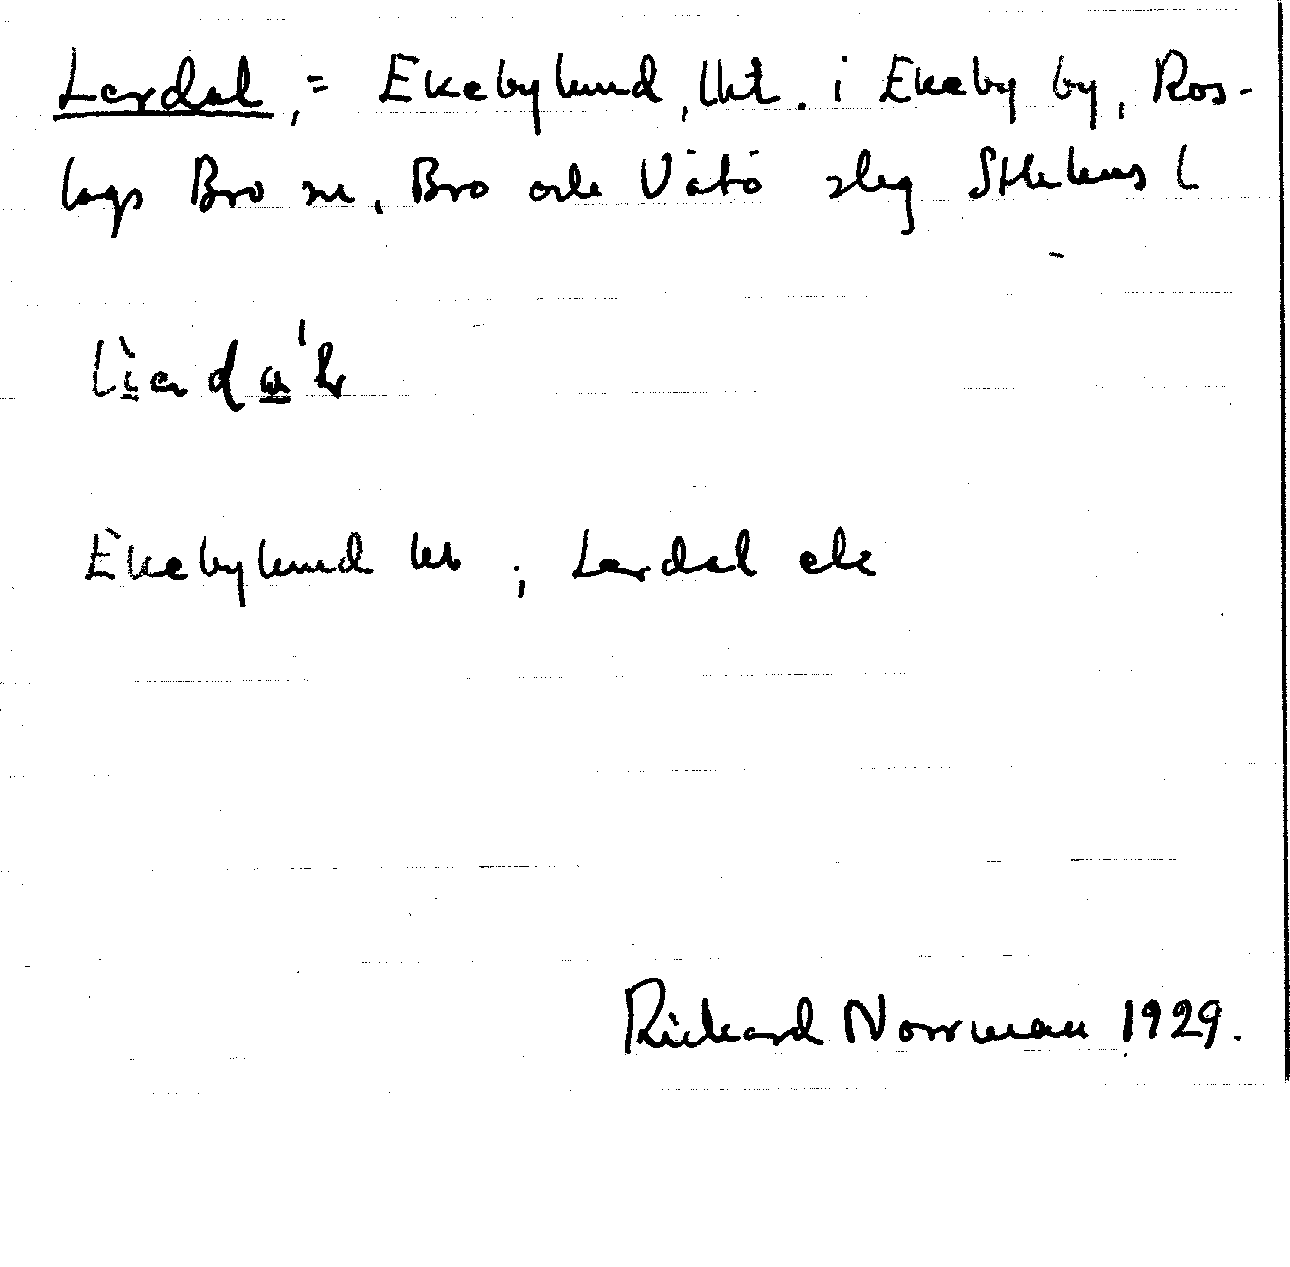 Lerdal, = Ekebylund, lht. i Ekeby by, Ros-
lags Bro sn, Bro och Vätö slag Sthlms l
Ekebylund kb ; Lerdal ek
Rickard Norrman 1929.